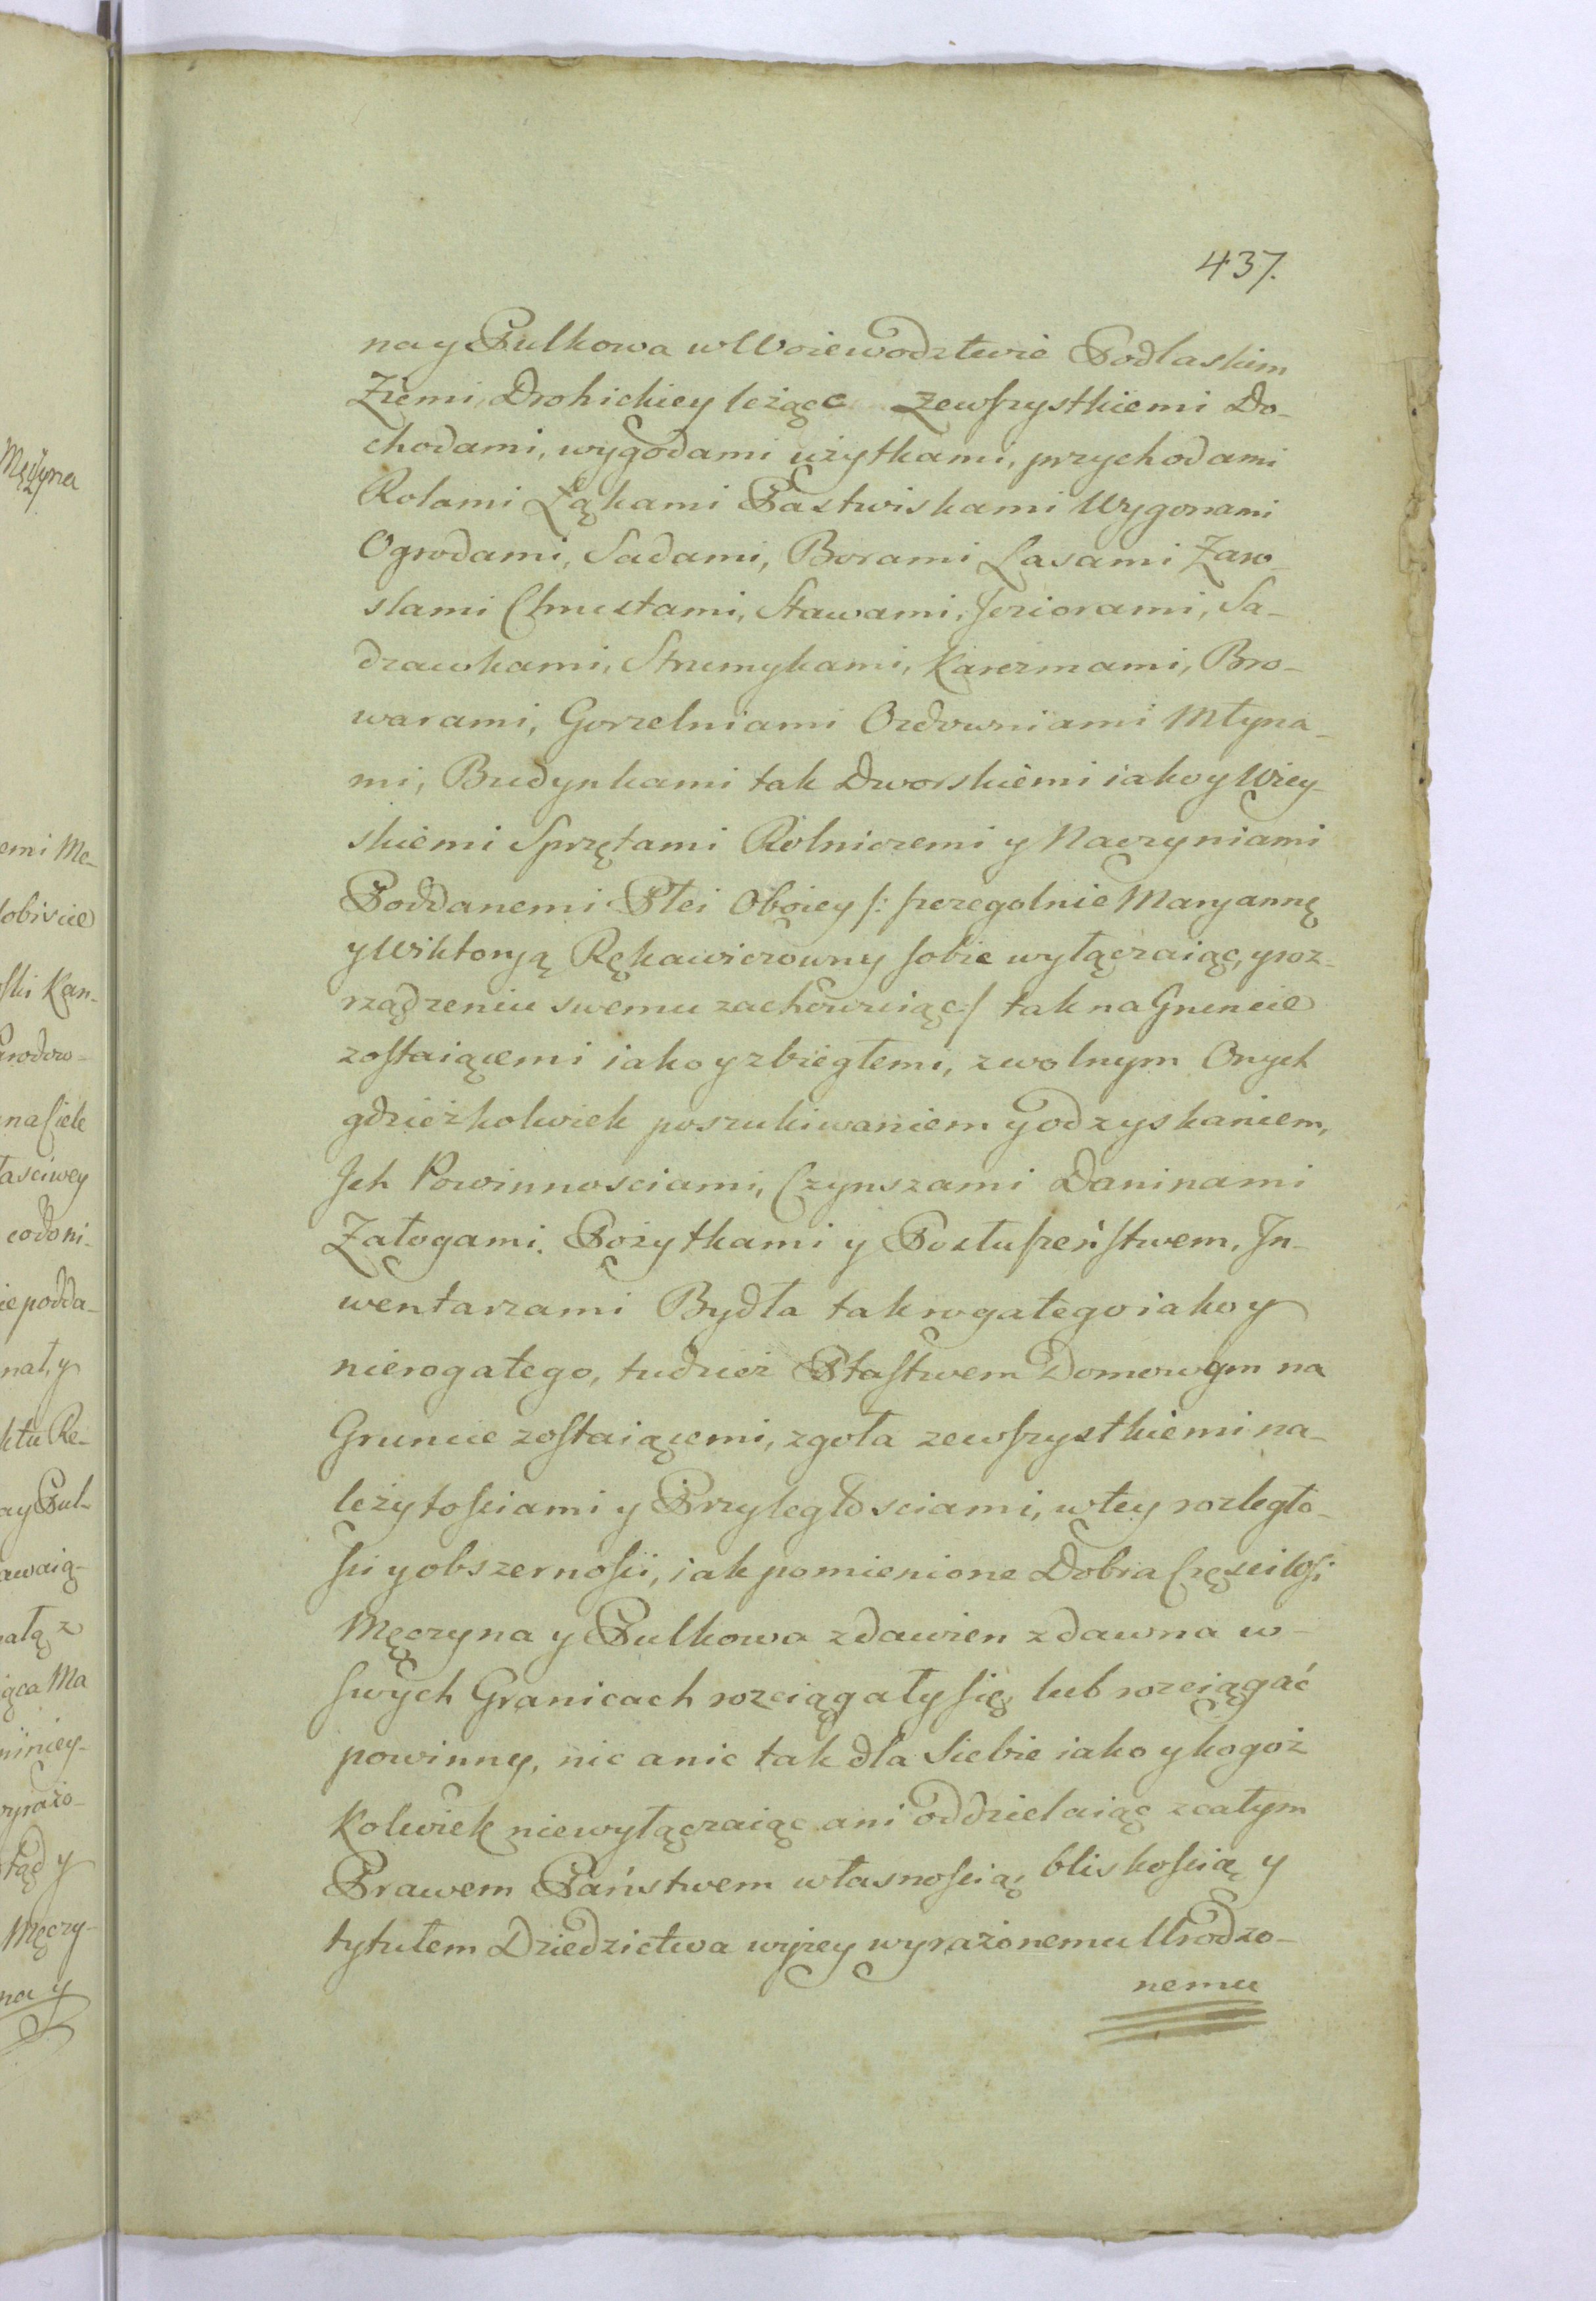 437.
na y Pulkowa w Woiewodztwie Podlaskim
Ziemi Drohickiey leżące zewszystkiemi Do-
chodami, wygodami użytkami, przychodami
Rolami Łąkami Pastwiskami Wygonami
Ogrodami, Sadami, Borami Lasami Zaro-
slami Chrustami, Stawami, Jeziorami, Sa-
dzawkami, Strumykami, Karczmami, Bro-
warami, Gorzelniami Ozdowniami Młyna-
mi, Budynkami tak Dworskiemi iako y Wiey-
skiemi Sprzętami Rolniczemi y Naczyniami
Poddanemi Płci Oboiey /: szczegolnie Maryannę
y Wiktoryą Rękawiczowny sobie wyłączaiąc, y roz-
rządzeniu swemu zachowuiąc :/ tak na Gruncie
zostaiącemi iako y zbiegłemi, z wolnym Onych
gdzieżkolwiek poszukiwaniem y odzyskaniem,
Jch Powinnosciami, Czynszami Daninami
Załogami. Pożytkami y Posłuszeństwem, Jn-
wentarzami Bydła tak rogatego iako y
nierogatego, tudzież Ptastwem Domowym na
Gruncie zostaiącemi, zgoła zewszystkiemi na-
leżytosciami y Przyległosciami, w tey rozległo-
sci y obszernosci, iak pomienione Dobra Części Wsi
Męczyna y Pulkowa zdawien zdawna w-
swych Granicach rozciągały się, lub rozciągać
powinny, nic a nic tak dla Siebie iako y kogoż
kolwiek niewyłączaiąc ani oddzielaiąc z całym
Prawem Państwem własnoscią, bliskoscią y
tytułem Dziedzictwa wyżey wyrażonemu Urodzo-
nemu
Męczyna
emi Me-
ski Kan-
na Siele
łasciwey
ie podda-
nat, y
ktu Re-
ay Pul-
awaią-
iąca Ma
niniey-
wyrażo-
tąd y
Męczy-
na y